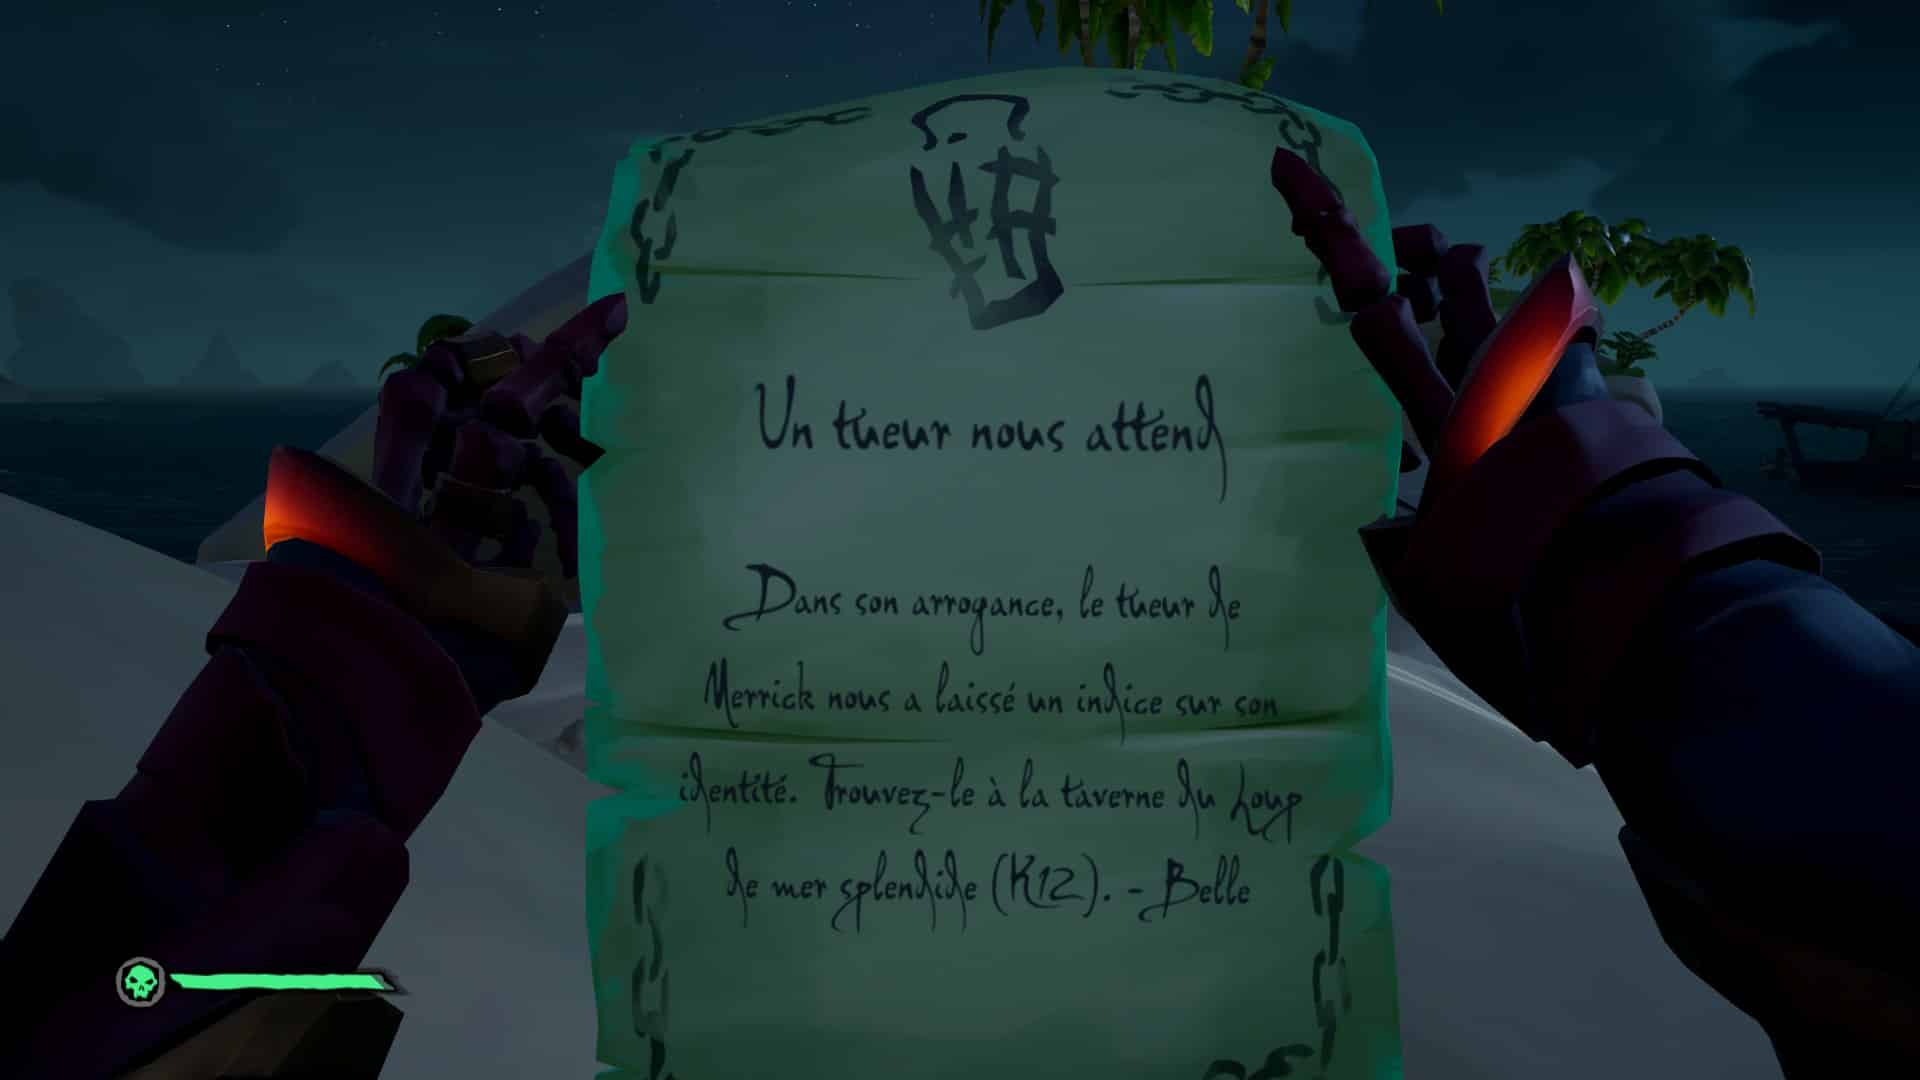 Un tueur nous attend
Dans son arrogance, le tueur de
Merrick nous a laissé un indice sur son
identité. Trouvez-le à la taverne du Loup
de mer splendide (K12). - Belle